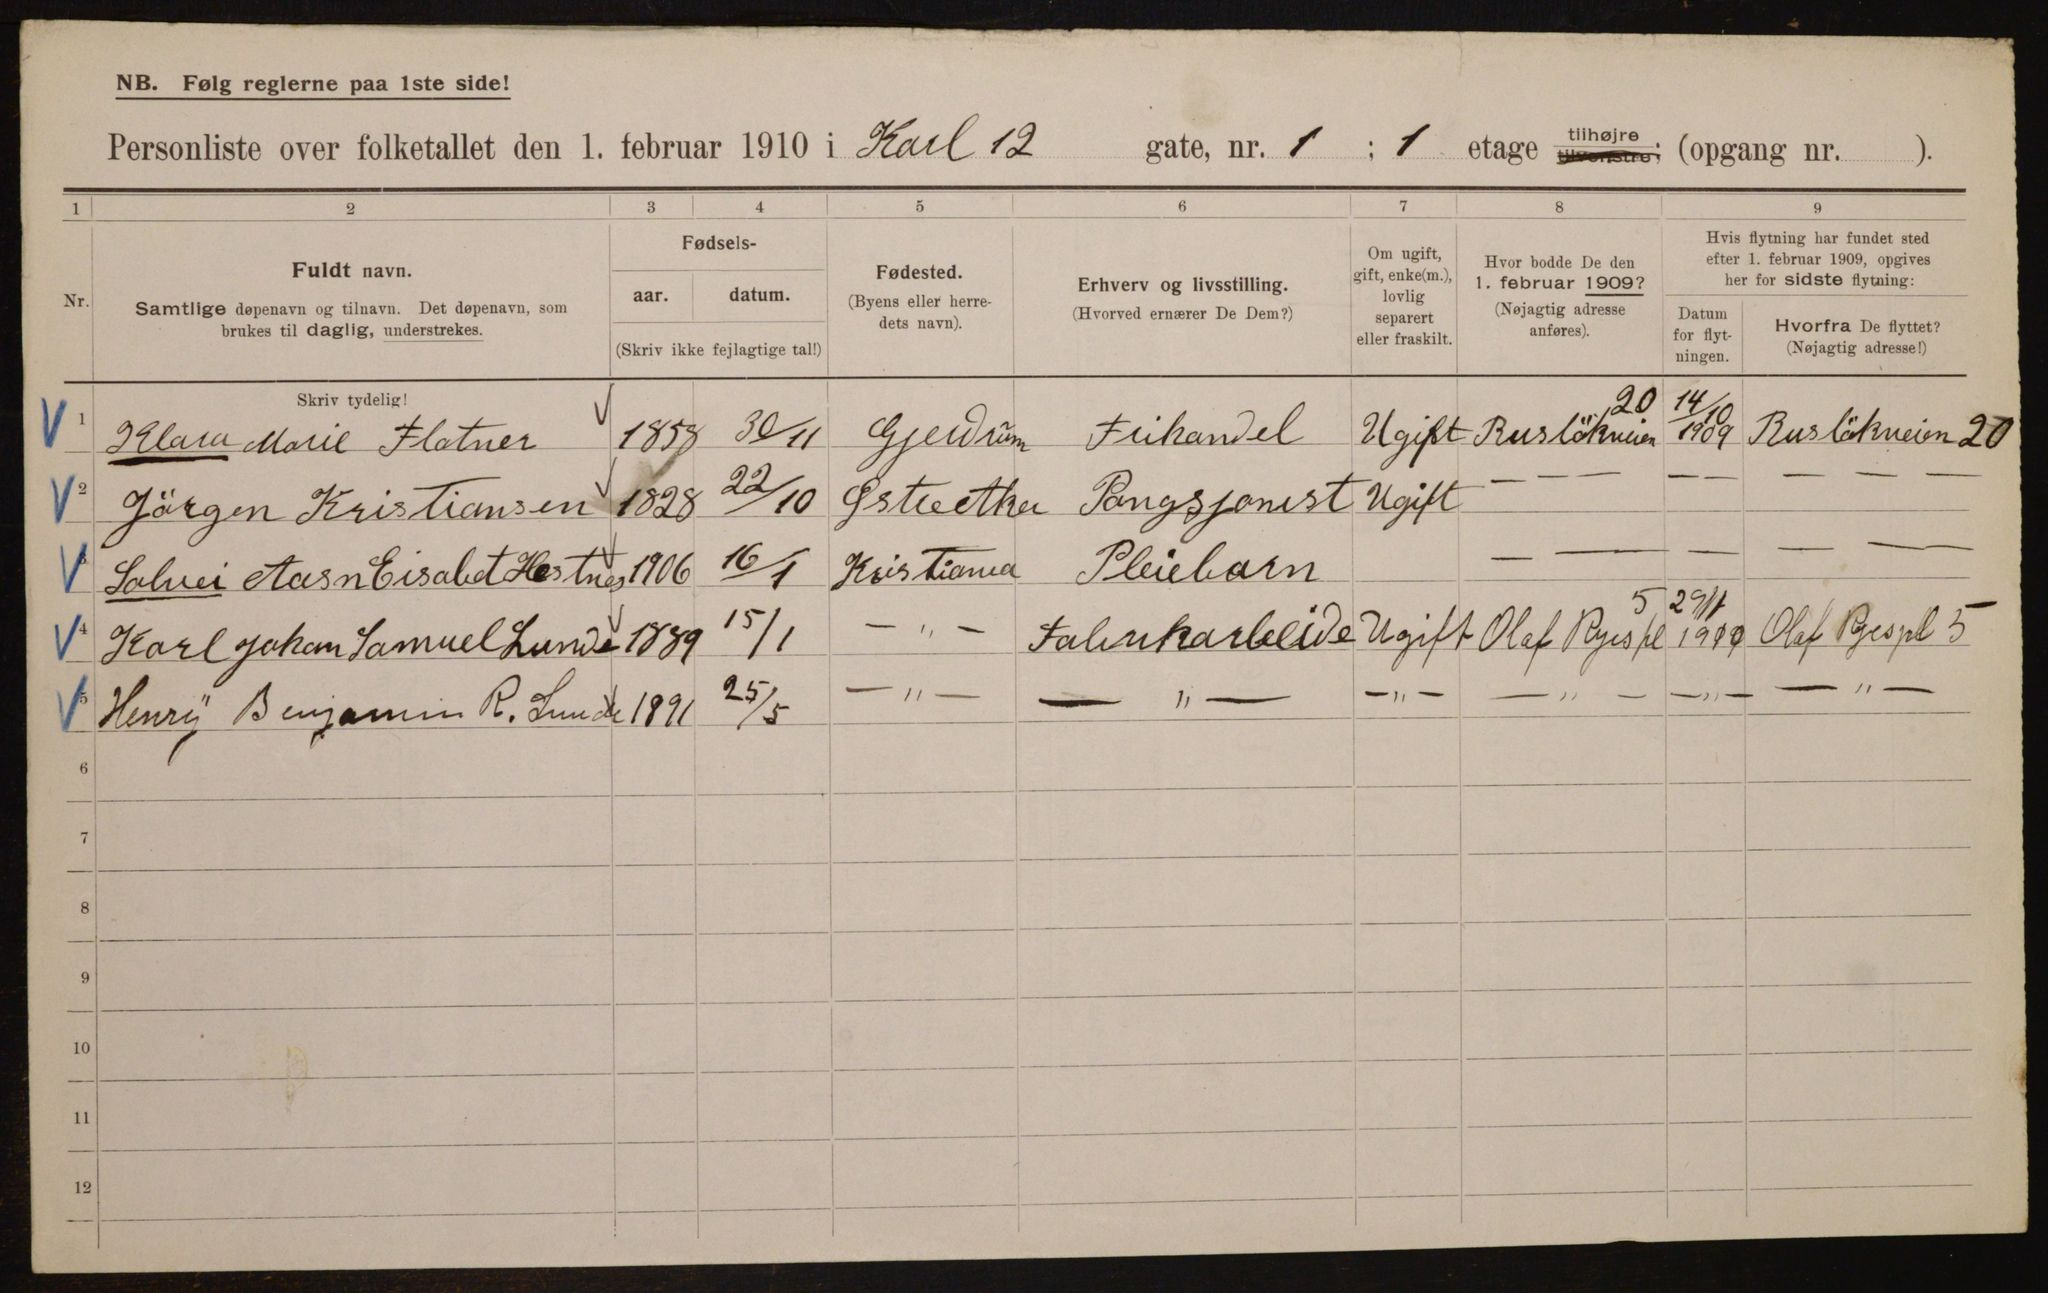 NB. Følg reglerne paa 1ste side!
Personliste over folketallet den 1. februar 1910 i Karl 12 gate, nr. 1 ; 1 etage tilhøjre tilvenstre; (opgang nr. ).
1 2 3 4 5 6 7 8 9
Nr.
Fuldt navn.
Samtlige døpenavn og tilnavn. Det døpenavn, som
brukes til daglig, understrekes.
Fødsels-
aar. datum.
(Skriv ikke fejlagtige tal!)
Fødested.
(Byens eller herre-
dets navn).
Erhverv og livsstilling.
(Hvorved ernærer De Dem?)
Om ugift,
gift, enke(m.),
lovlig
separert
eller fraskilt.
Hvor bodde De den
1. februar 1909?
(Nøjagtig adresse
anføres).
Hvis flytning har fundet sted
efter 1. februar 1909, opgives
her for sidste flytning:
Datum
for flyt-
ningen.
Hvorfra De flyttet?
(Nøjagtig adresse!)
Skriv tydelig!
1 Klara Marie Flatner 1858 30/11 Gjerdrum Frihandel Ugift Ruslökveien 20 14/10 1909 Ruslökveien 20
2 Jörgen Kristiansen 1828 22/10 Pangsjonist Ugift — — — — — — — —
Solvei Hestnes 1906 16/1 Kristiania Pleiebarn — — — — — —
4 Karl Johan Samuel Lunde 1889 15/1 — „ — Ugift Olaf Ryespl 5 Olaf Ryespl 5
5 Henrÿ Benjamin R. Lunde 1891 25/5 — „ — — „ — — „ — — „ — — „ — — „ —
6
7
8
9
10
11
12